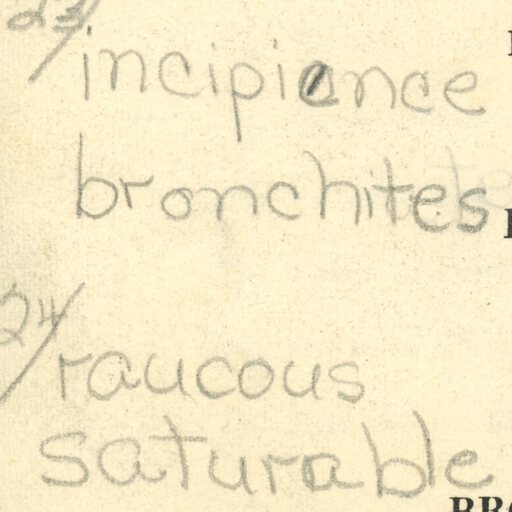 23/
incipience
bronchites
24/
raucous
saturable